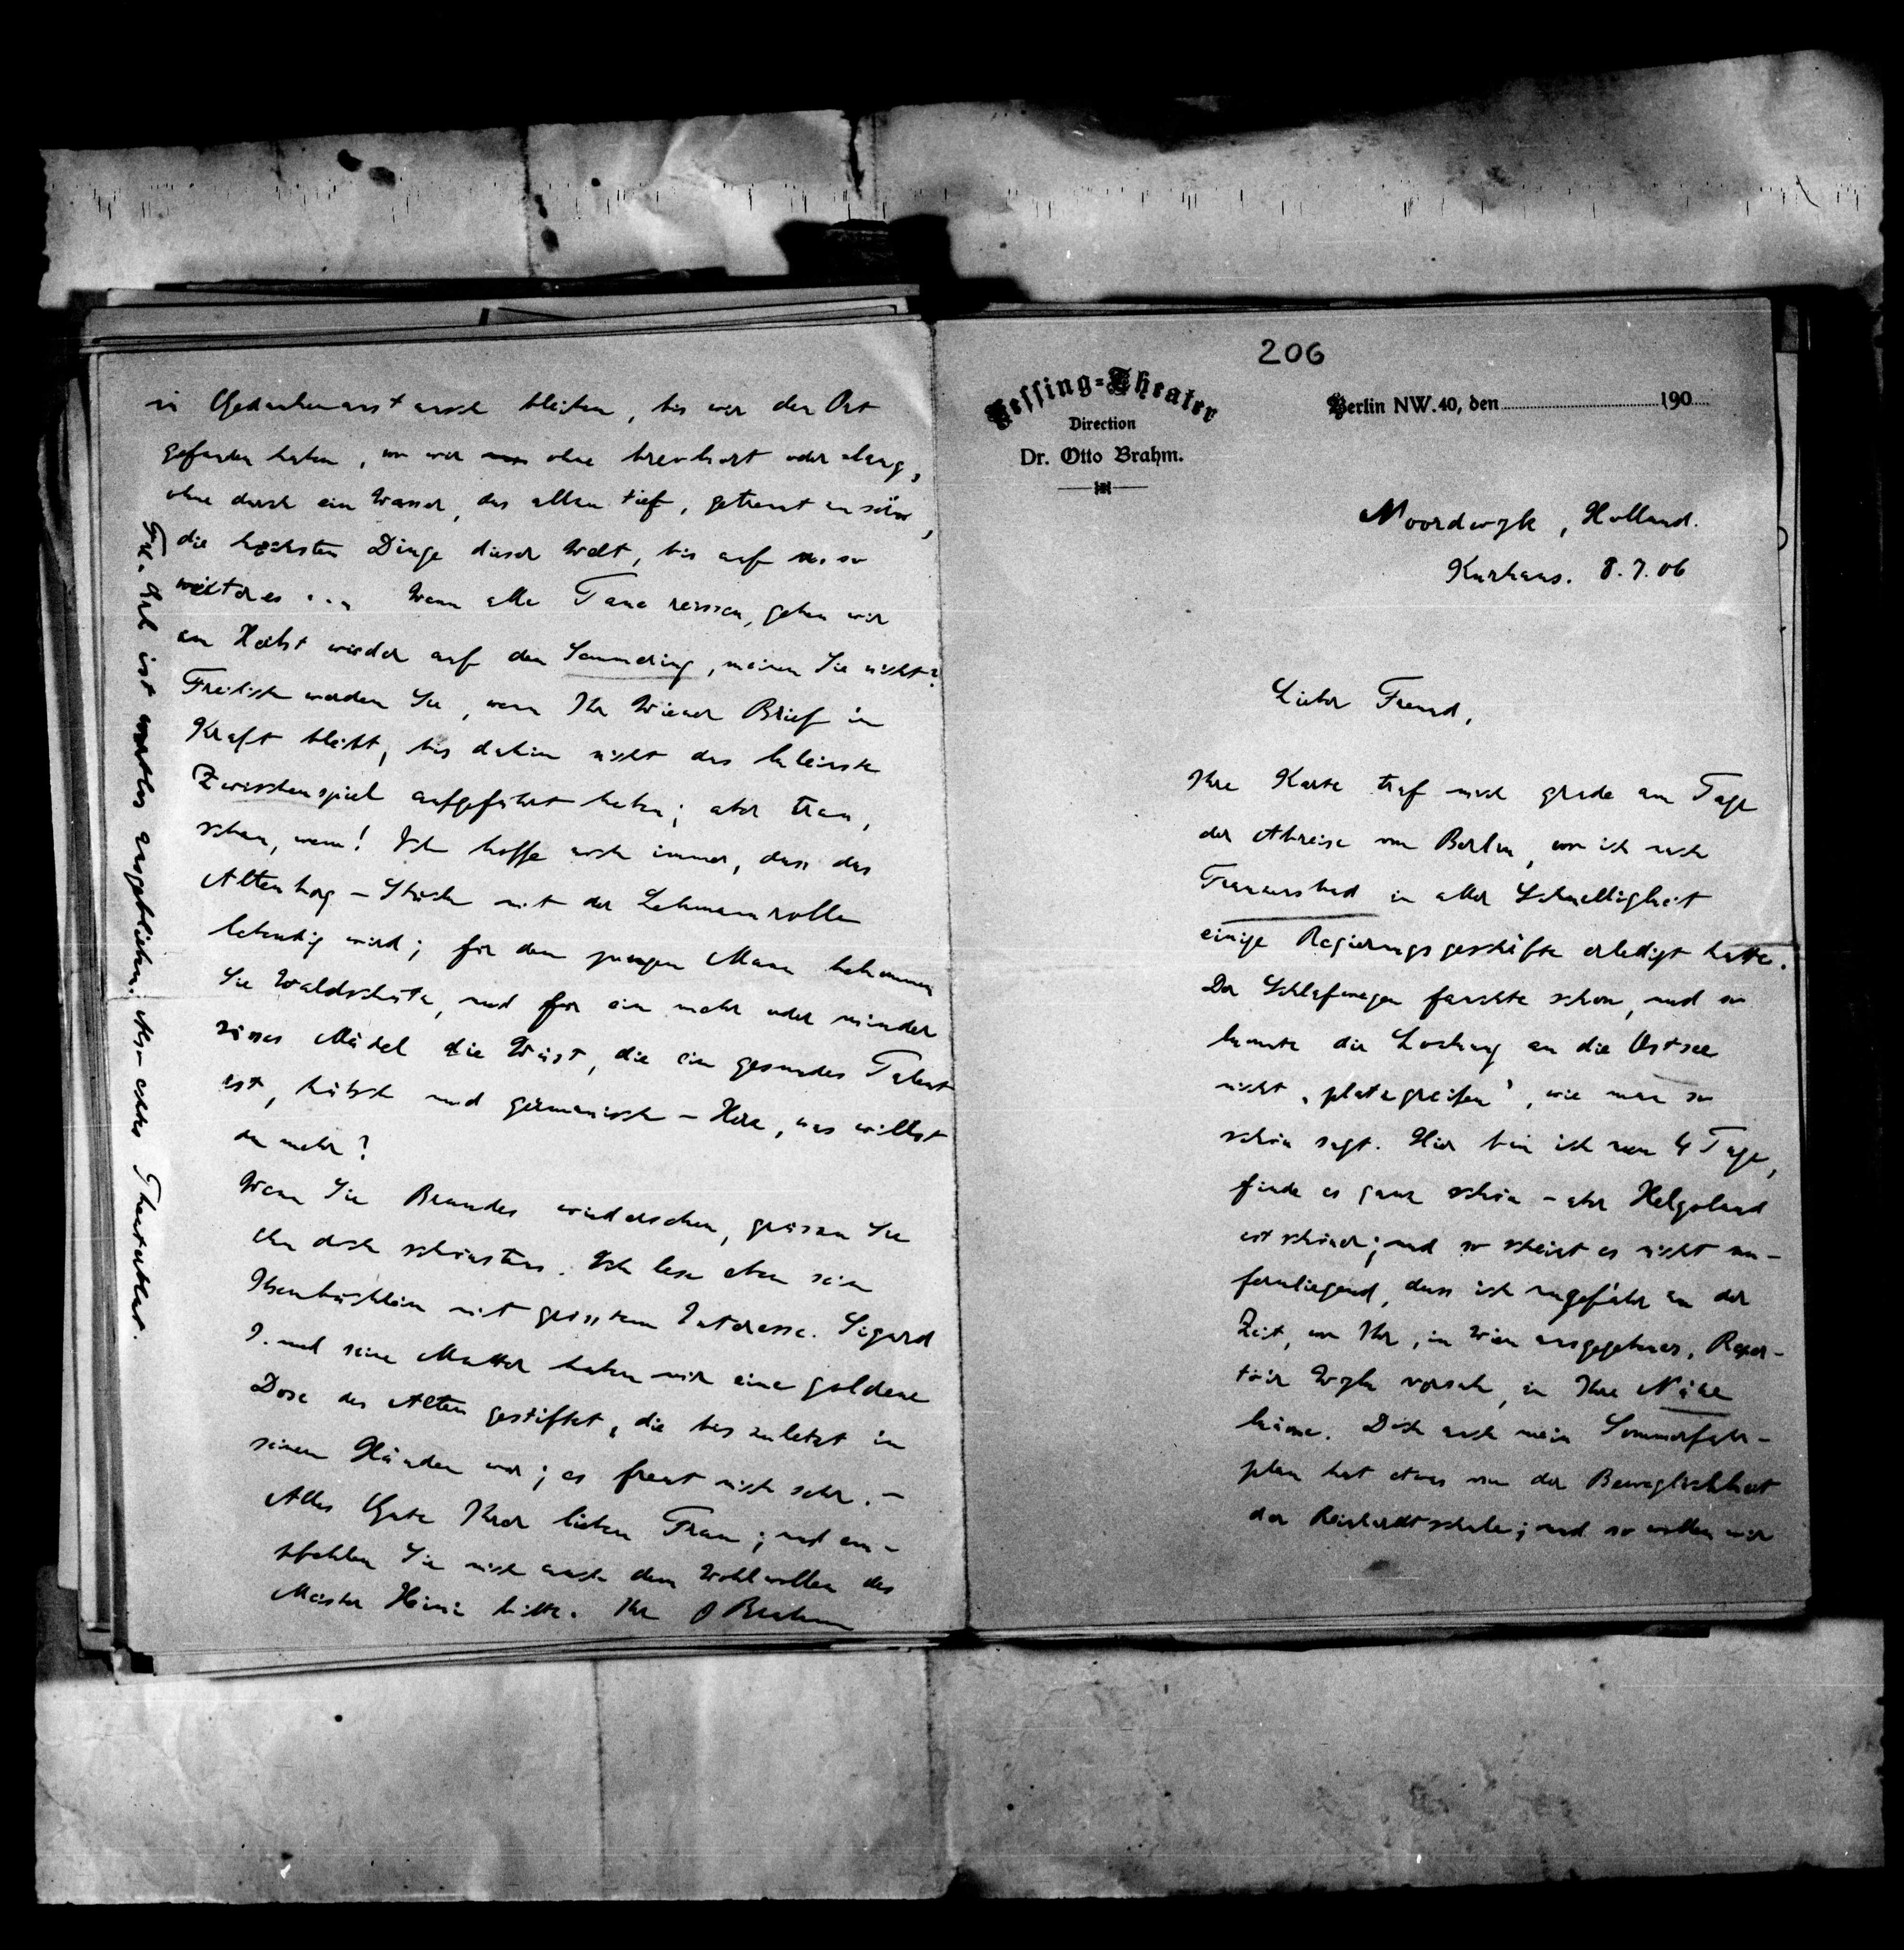 206
Lessing-Theater
Direction
Dr. Otto Brahm.
Berlin NW. 40, den 190
Noordwyk, Holland.
Kurhaus. 8.7.06
Lieber Freund,
Ihre Karte traf mich grade am Tage
der Abreise von Berlin, wo ich nach
in aller Schnelligkeit
einige Regierungsgeschäfte erledigt hatte.
Der Schlafwagen fauchte schon, und so
konnte die Lockung an die Ostsee
nicht „platzgreifen“, wie man so
schön sagt. Hier bin ich nun 4 Tage,
finde es ganz schön – aber Helgoland
ist schöner; und so scheint es nicht un-
fernliegend, dass ich ungefähr zu der
Zeit, wo Ihr, in Wien ausgegebenes, Reper-
toir Wyk vorsah, in Ihre Nähe
käme. Doch auch mein Sommerfahr-
plan hat etwas von der Beweglichkeit
der Reinhardtschule; und so wollen wir
in Gedankenaustausch bleiben, bis wir den Ort
gefunden haben, wo wir ohne
ohne durch ein Wasser, das allzu tief, getrennt zu sein,
die höchsten Dinge dieser Welt, bis auf
weiteres ... Wenn alle Taue reissen, gehen wir
im Herbst wieder auf den Semmering, meinen Sie nicht?
Freilich werden Sie, wenn Ihr Wiener Brief in
Kraft bleibt, bis dahin nicht das kleinste
Zwischenspiel aufgeführt haben; aber trau,
schau, wem! Ich hoffe noch immer, dass das
Altenberg-Stück mit der Lehmannrolle
lebendig wird; für den jungen Mann bekommen
Sie und für ein mehr oder minder
süsses Mädel die Wüst, die ein gesundes Talent
ist, hübsch und germanisch – Herz, was willst
du mehr?
Wenn Sie Brandes wiedersehen, grüssen Sie
ihn doch schönstens. Ich lese eben sein
Ibsenbüchlein mit grösstem Interesse. Sigurd
I. und seine Mutter haben mir eine goldene
Dose des Alten gestiftet, die bis zuletzt in
seinen Händen war; es freut mich sehr. –
Alles Gute Ihrer lieben Frau; und em-
pfehlen Sie mich auch dem Wohlwollen des
Meister Heini bitte. Ihr OBrahm
ist wortlos ausgeblieben. Also echtes Theaterblut.